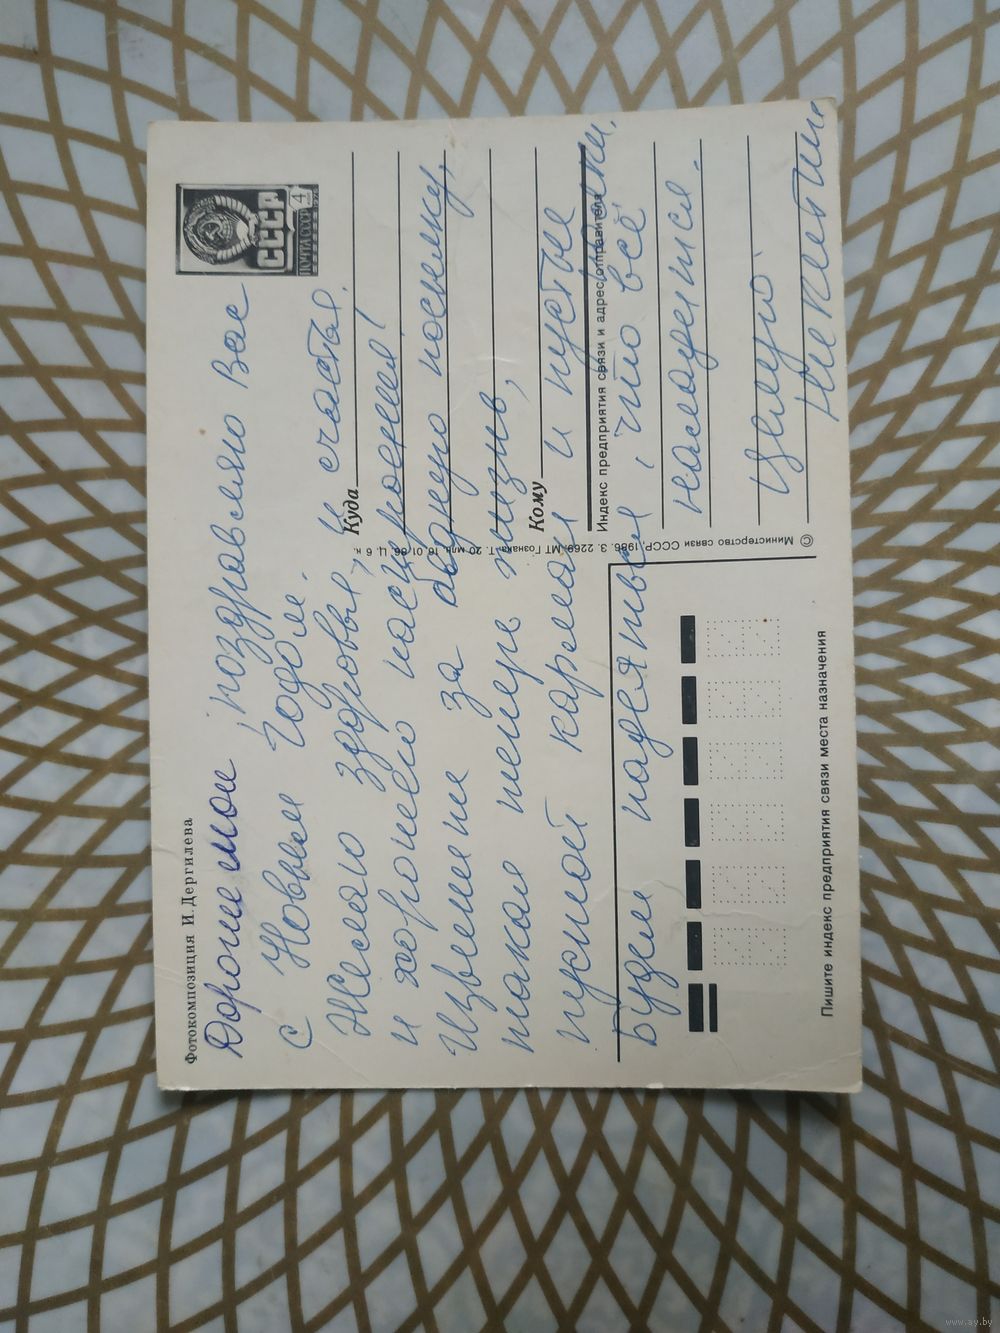 Фотокомпозиция И. Дергилева
Дорогие мои, поздравляю Вас
с Новым годом.
Желаю здоровья, и счастья.
и хорошего настроения!
Извените за бедную посылку,
такая теперь жизнь,
пустой карман и пустые
Будем надеяться, что всё
наладится.
Целую
ПОЧТА СССР 4
СССР
Куда
Кому
Индекс предприятия связи и адрес отправителя
© Министерство связи СССР, 1986. З. 2269. МТ Гознака. Т. 20 млн. 16.01.86. Ц. 6 к.
Пишите индекс предприятия связи места назначения
www.ay.by